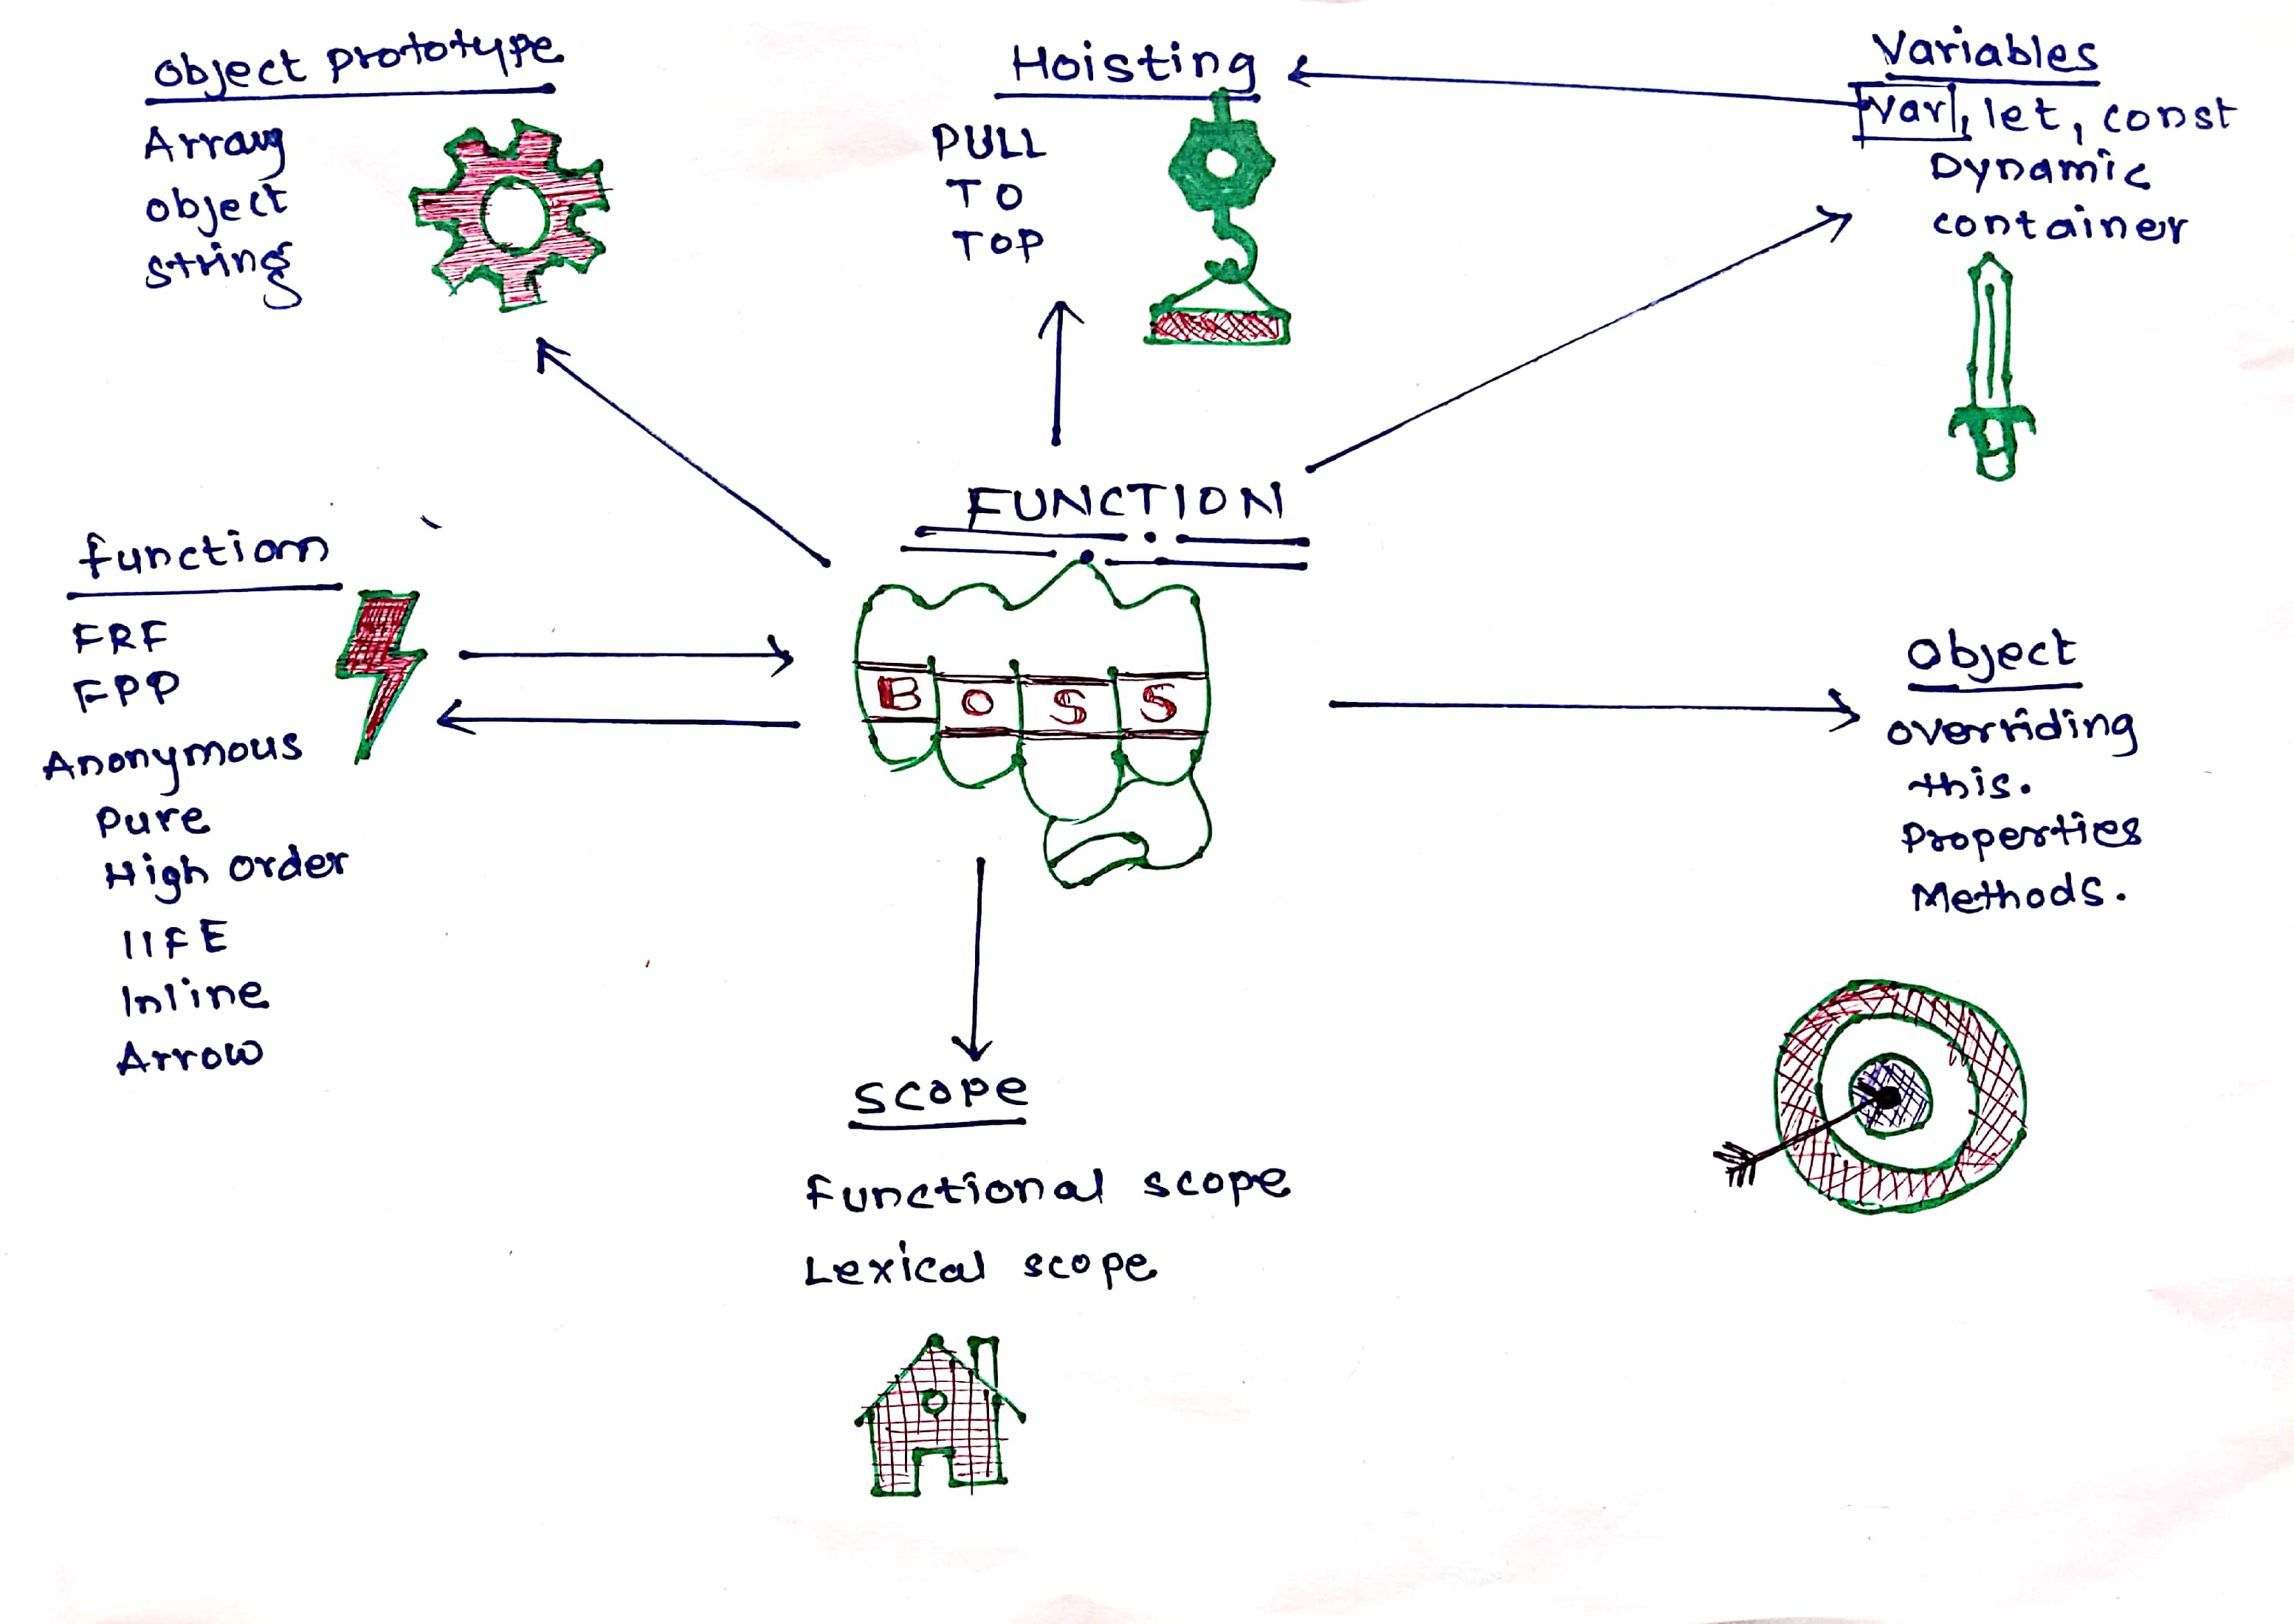 Object prototype
Array
object
string
Hoisting
PULL
TO
TOP
Variables
var, let, const
Dynamic
container
FUNCTION
BOSS
function
FRF
FPP
Anonymous
Pure
High order
IIFE
Inline
Arrow
Object
overriding
this.
Properties
Methods.
scope
Functional scope
Lexical scope